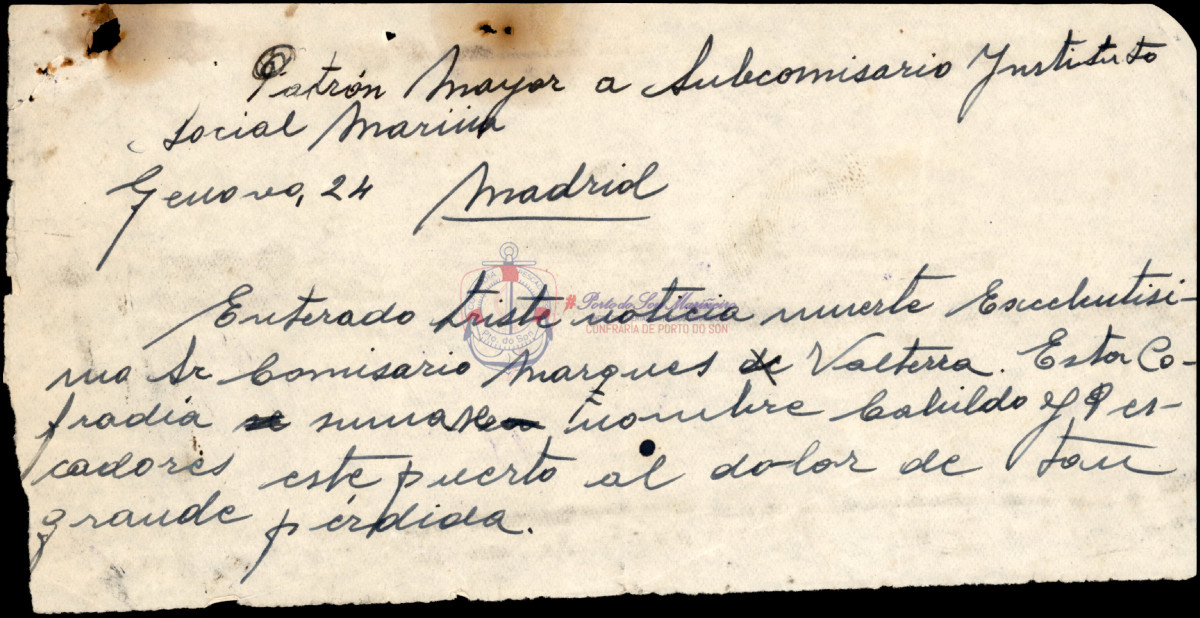 Patrón Mayor a Subcomisario Ynstituto
Social Marina
Genova, 24 Madrid
Enterado triste noticia muerte Excelentisi-
mo Sr Comisario Marques de Valterra. Esta Co-
fradia se sumase nombre Cabildo y Pes-
cadores este puerto al dolor de tan
grande pérdida.
Pto. do Son
# Porto do Son Mariñeiro
CONFRARÍA DE PORTO DO SON